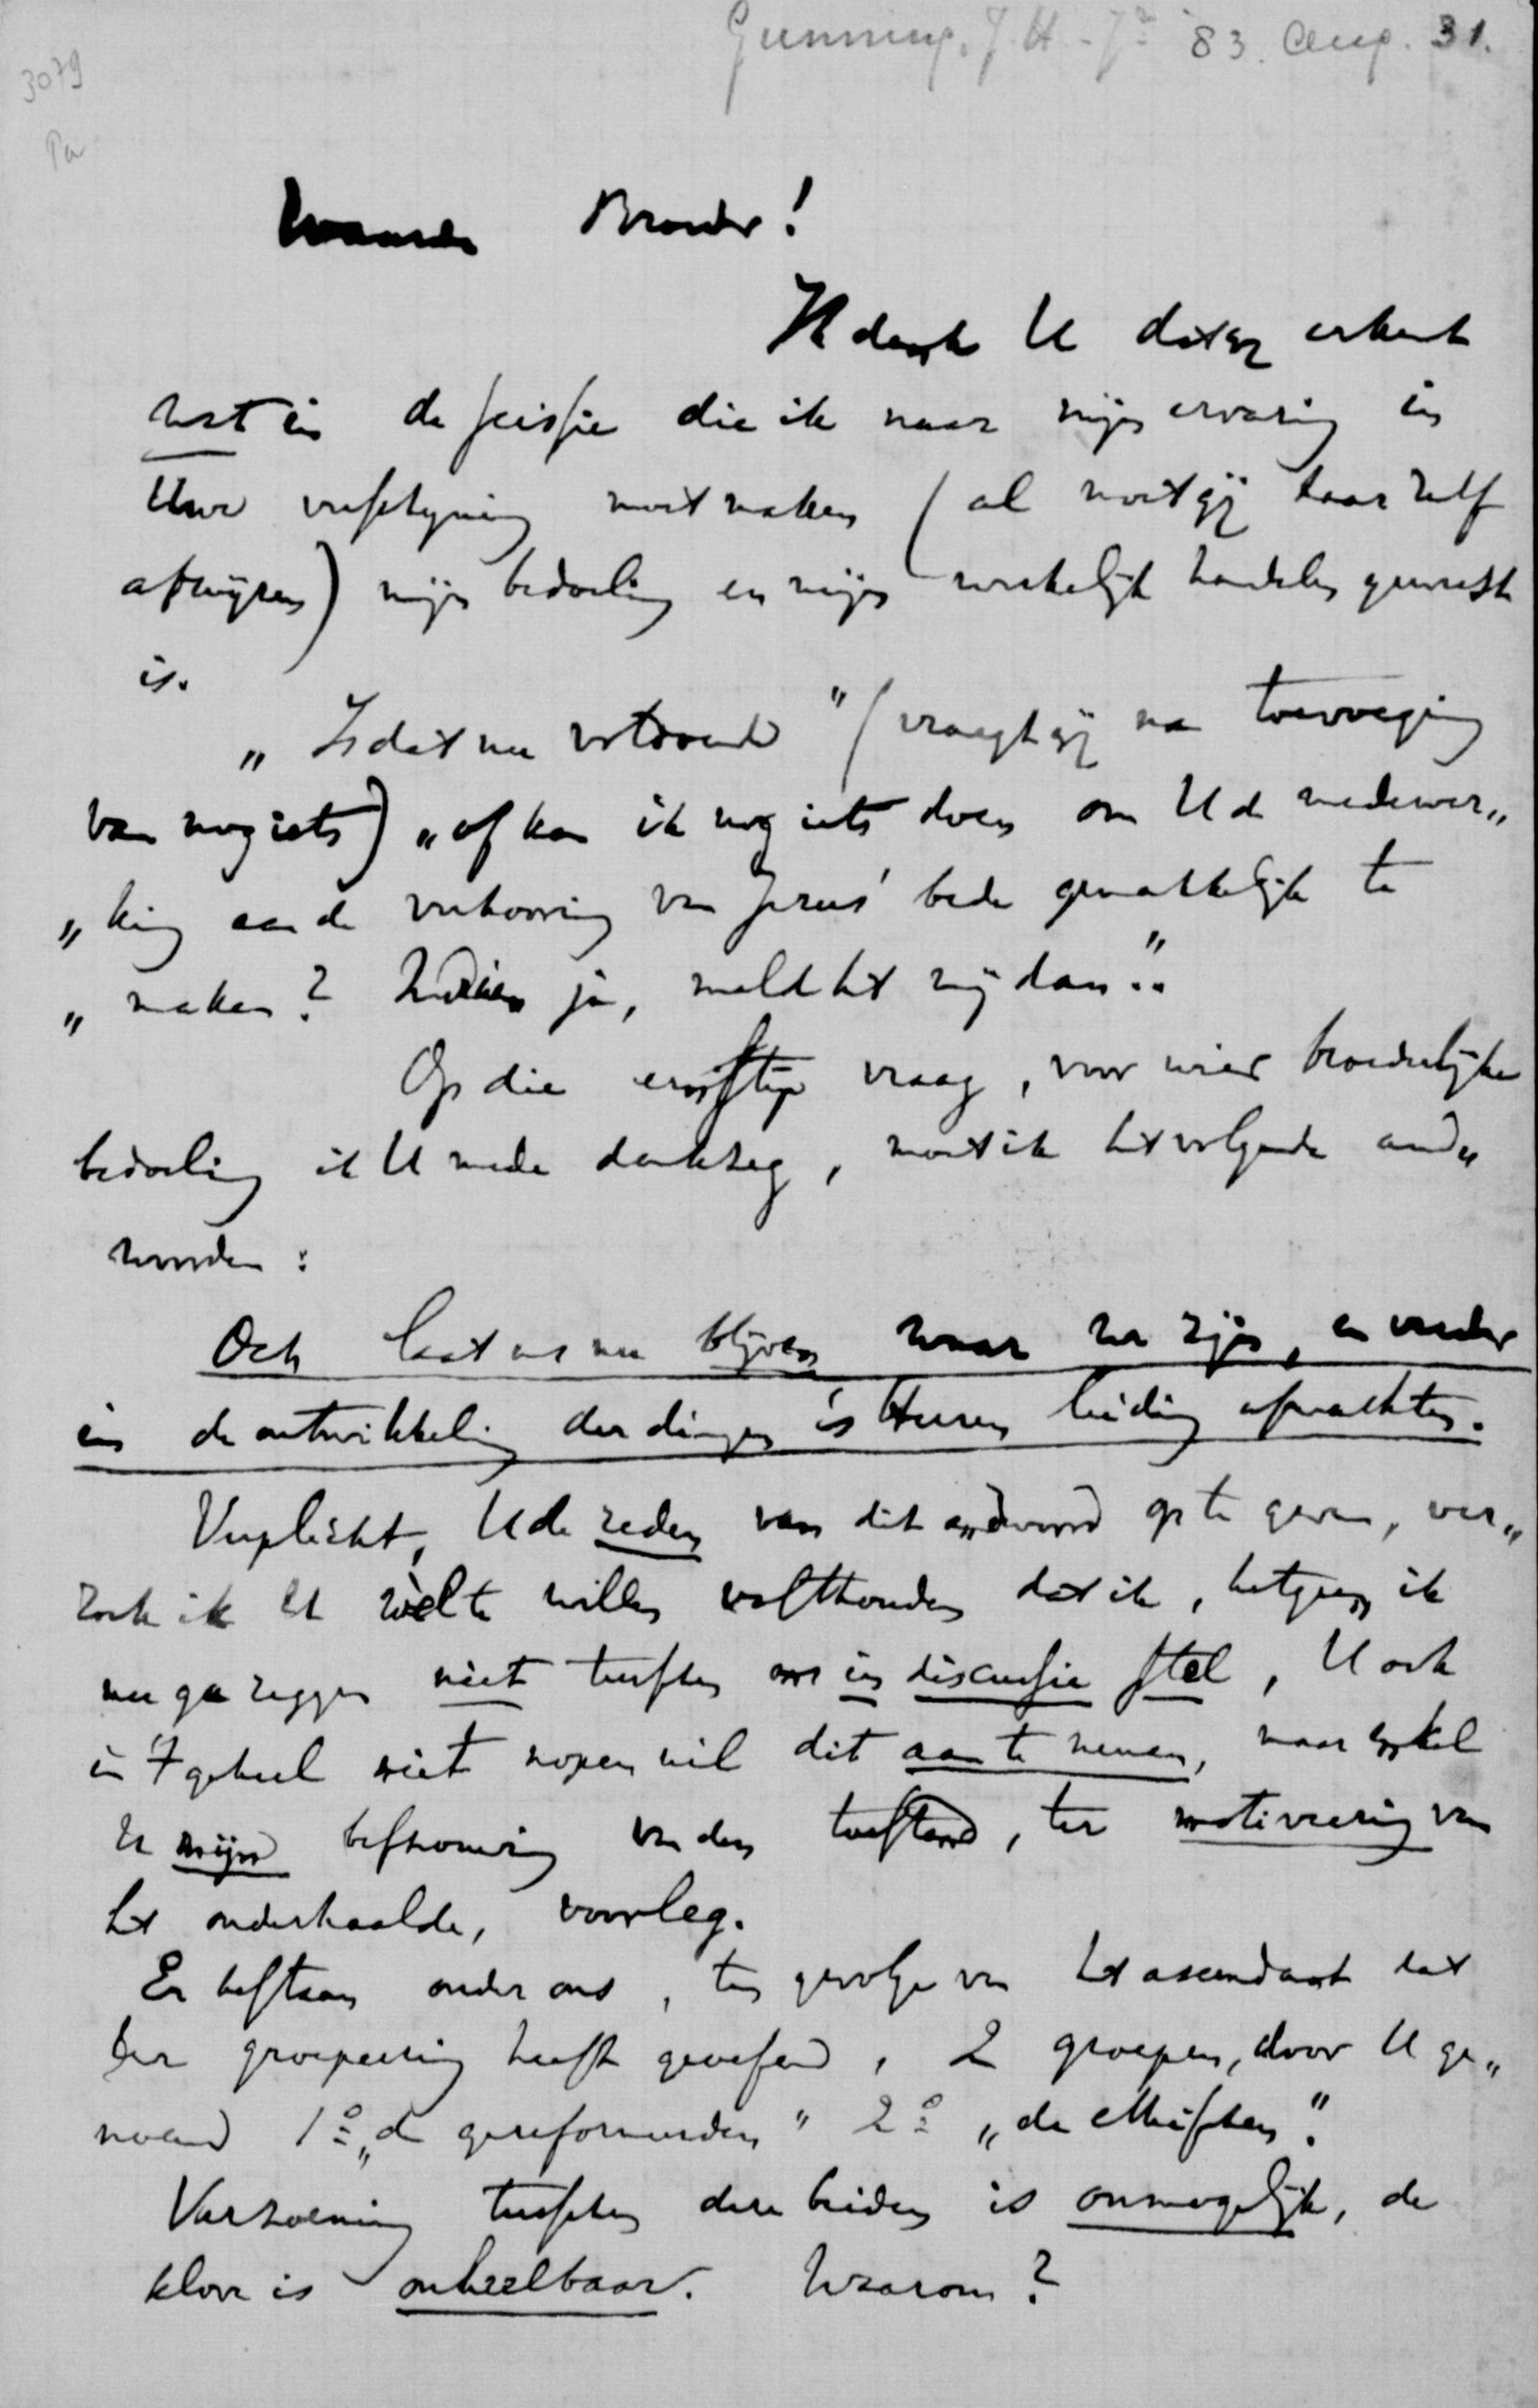 Gunning, J. H. - Jr. 83. Aug. 31.
3079
Pa
Waarde Broeder!
Ik dank U dat gij erkent
wat in de scissie die ik naar mijn ervaring in
Uwe verschijning moet maken (al moet gij haar zelf
afwijzen) mijn bedoeling en mijn werkelijk handelen geweest
is.
„Is dat nu voldoende" (vraagt gij na toevoeging
van nog iets) „of kan ik nog iets doen om U de medewer„
„king aan de verhooring van Jezus' bede gemakkelijk te
„maken? Indien ja, meld het mij dan."
Op die ernstige vraag, voor wier broederlijke
bedoeling ik U mede dankzeg, moet ik het volgende ant„
woorden:
Och laat ons nu blijven waar we zijn, en verder
in de ontwikkeling der dingen 's Heeren leiding afwachten.
Verplicht, U de reden van dit antwoord op te geven, ver„
zoek ik U wèl te willen vasthouden dat ik, hetgeen ik
nu ga zeggen niet tusschen ons in discussie stel, U ook
in 't geheel niet nopen wil dit aan te nemen, maar enkel
U mijn beschouwing van den toestand, ter motiveering van
het onderhaalde, voorleg.
Er bestaan onder ons, ten gevolge van het ascendant dat
Uw groepeering heeft geoefend, 2 groepen, door U ge„
noemd 1º „de gereformeerden" 2º „de ethischen".
Verzoening tusschen deze beiden is onmogelijk, de
klove is onheelbaar. Waarom?